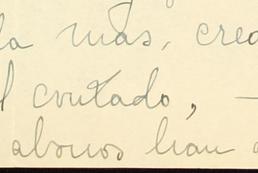 la más, crea
l contado, —
abonos han d